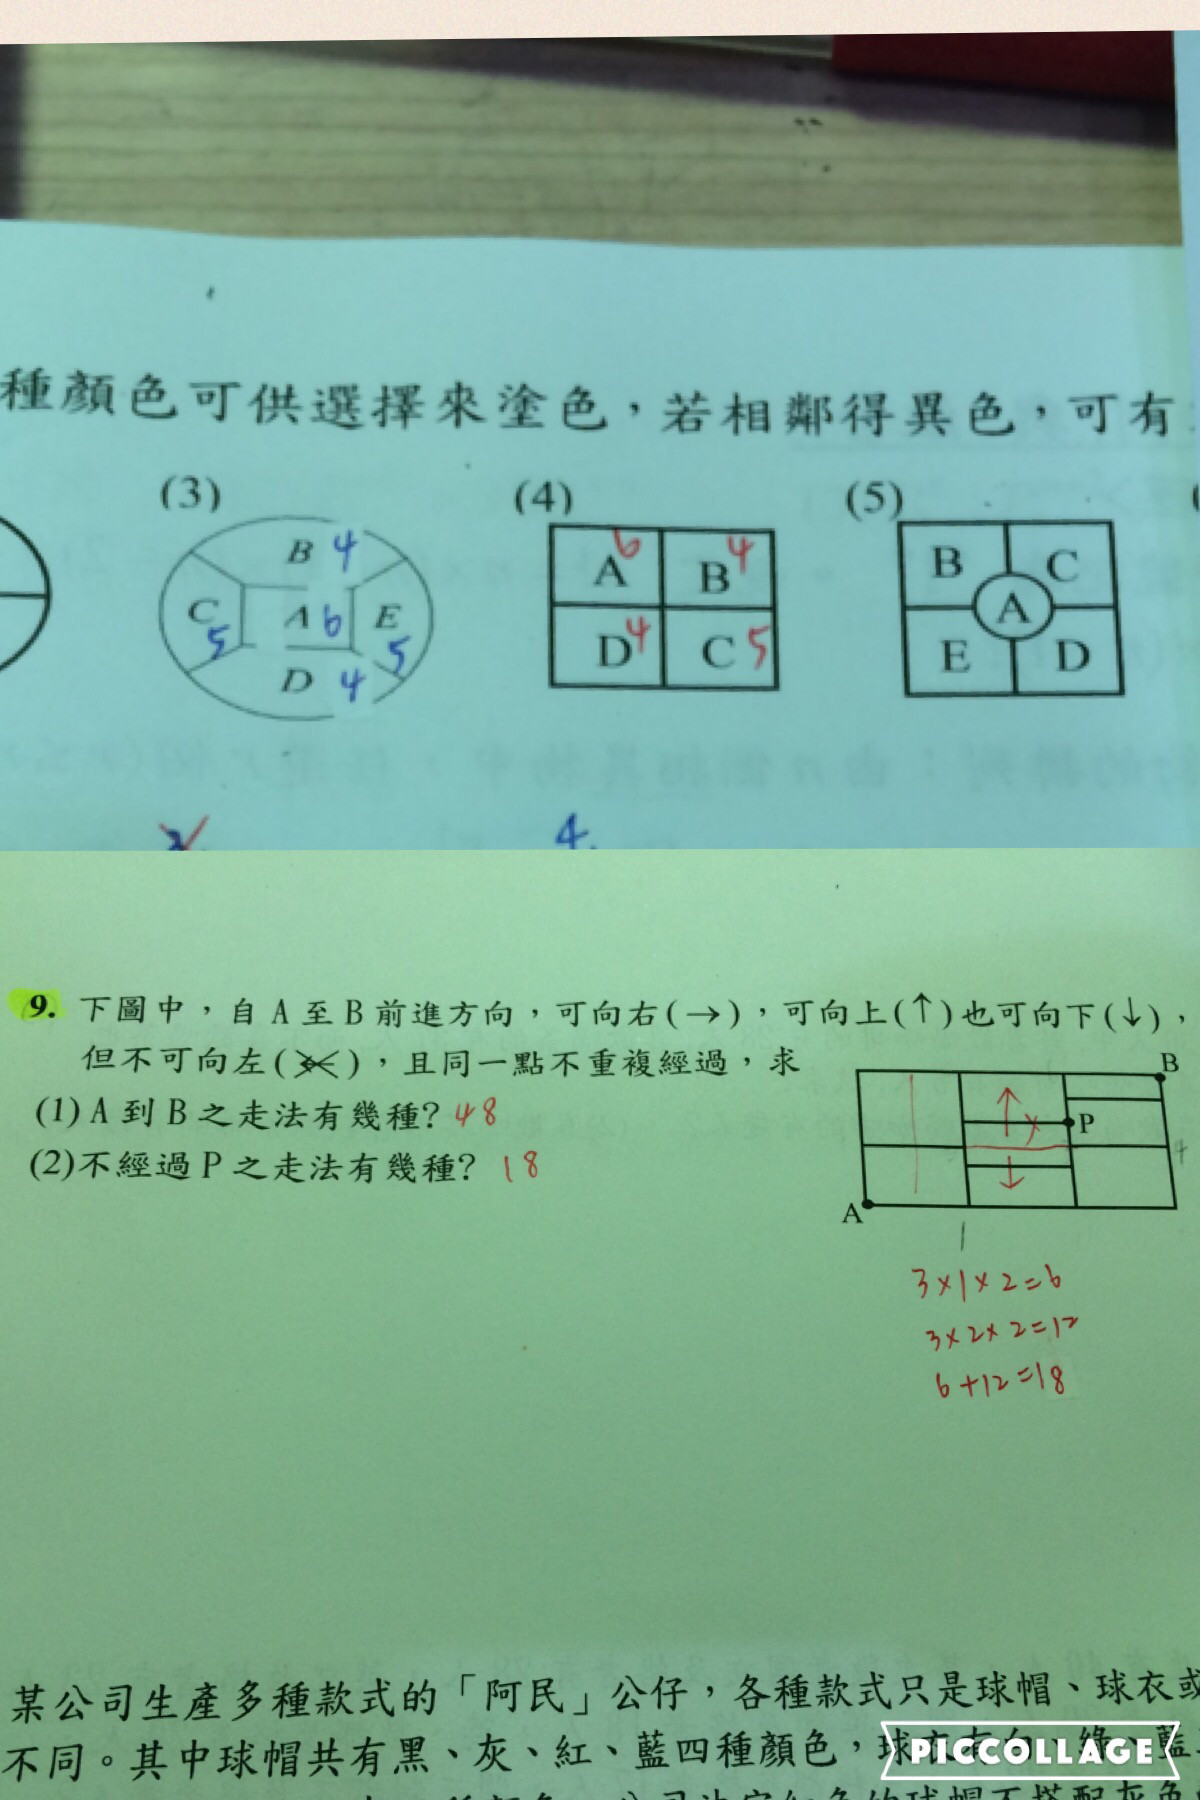 種顏色可供選擇來塗色，若相鄰得異色，可有
(3) (4) (5)
B 4 A 6 B 4 B C
C 5 A 6 E 5 A
D 4 D 4 C 5 E D
4.
9. 下圖中，自 A 至 B 前進方向，可向右(→)，可向上(↑)也可向下(↓)，
但不可向左(←)，且同一點不重複經過，求
B
(1) A 到 B 之走法有幾種? 48
P
(2)不經過 P 之走法有幾種? 18
A
3×1×2=6
3×2×2=12
6+12=18
某公司生產多種款式的「阿民」公仔，各種款式只是球帽、球衣或
不同。其中球帽共有黑、灰、紅、藍四種顏色，球衣有白、綠、藍
PICCOLLAGE